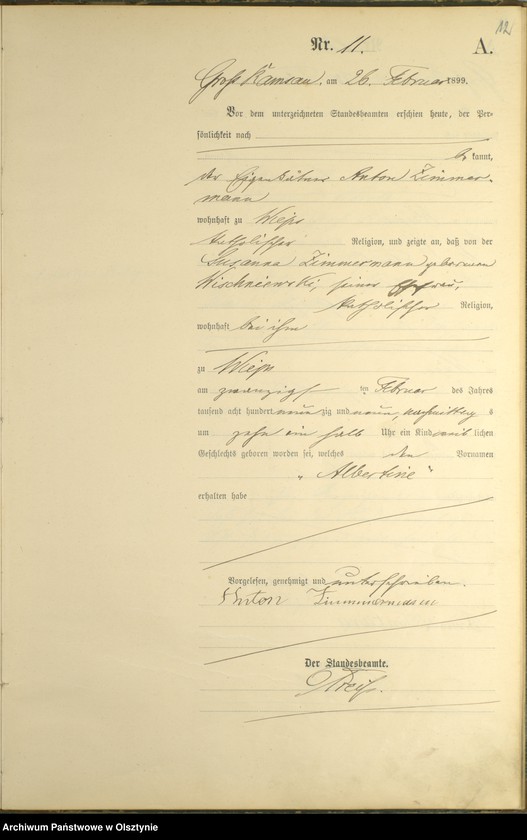 12
Nr. 11. A.
Groß Ramsau, am 26. Februar 1899.
Vor dem unterzeichneten Standesbeamten erschien heute, der Per-
sönlichkeit nach
be kannt,
der Eigenkätner Anton Zimmer-
mann
wohnhaft zu Wieps
katholischer Religion, und zeigte an, daß von der
Susanna Zimmermann geborenen
Wischniewski, seiner Ehefrau,
katholischer Religion,
wohnhaft bei ihm
zu Wieps
am zwanzigsten Februar des Jahres
tausend acht hundert neunzig und neun, Nachmittags
um zehn ein halb Uhr ein Kind weiblichen
Geschlechts geboren worden sei, welches den Vornamen
„Albertine“
erhalten habe
Vorgelesen, genehmigt und unterschrieben.
Anton Zimmermann
Der Standesbeamte.
Archiwum Państwowe w Olsztynie